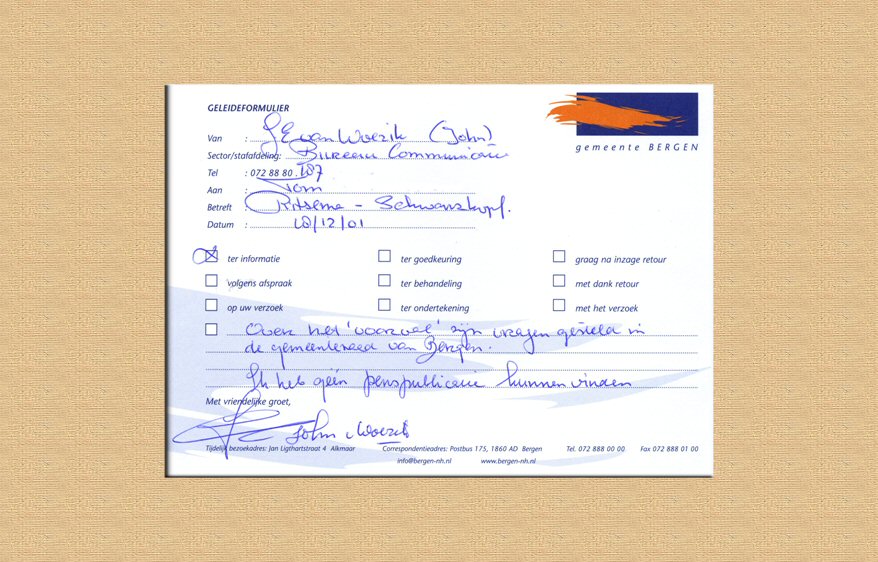 GELEIDEFORMULIER
gemeente BERGEN
Van : J E van Woerik (John)
Sector/stafafdeling: Bureau Communicatie
Tel : 072 88 80
Aan : Tom
Betreft : Ritsema - Schwarzkopf.
Datum : 10/12/01
ter informatie
ter goedkeuring
graag na inzage retour
volgens afspraak
ter behandeling
met dank retour
op uw verzoek
ter ondertekening
met het verzoek
Over het 'voorval' zijn vragen gesteld in
de gemeenteraad van Bergen.
Ik heb géén perspublicatie kunnen vinden
Met vriendelijke groet,
John Woerik
Tijdelijk bezoekadres: Jan Ligthartstraat 4 Alkmaar Correspondentieadres: Postbus 175, 1860 AD Bergen Tel. 072 888 00 00 Fax 072 888 01 00
info@bergen-nh.nl www.bergen-nh.nl